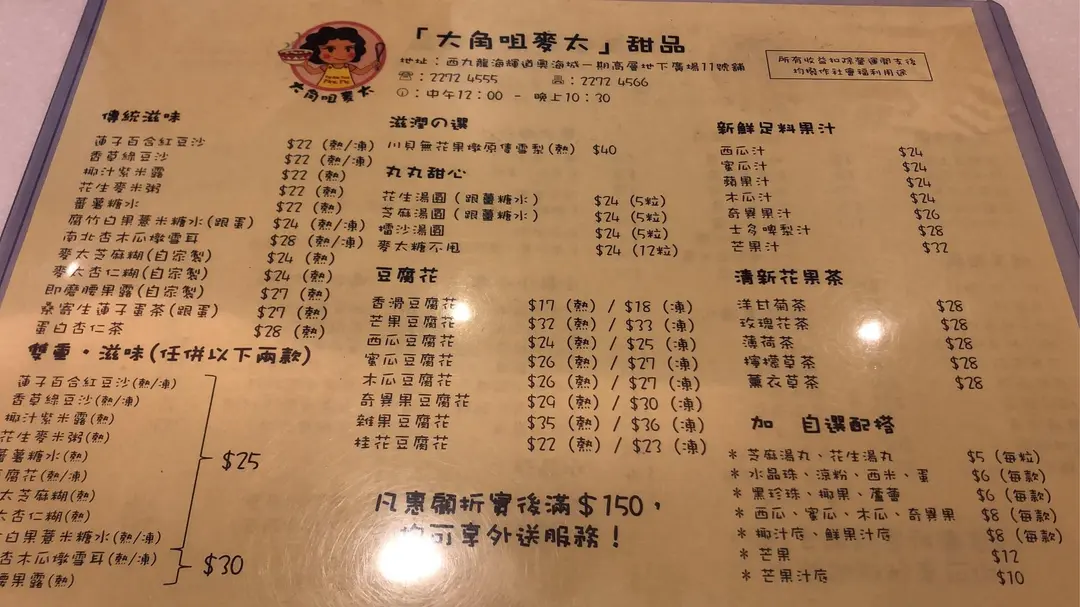 「大角咀麥太」甜品
地址：西九龍海輝道奧海城一期高層地下廣場11號舖
☎：2272 4555 2272 4566
中午12：00 - 晚上10：30
所有收益扣除營運開支後
均撥作社會福利用途
大角咀麥太
傳統滋味
蓮子百合紅豆沙 $22 (熱/凍)
香草綠豆沙 $22 (熱/凍)
椰汁紫米露 $22 (熱)
花生麥米粥 $22 (熱)
蕃薯糖水 $22 (熱)
腐竹白果薏米糖水(跟蛋) $24 (熱/凍)
南北杏木瓜燉雪耳 $28 (熱/凍)
麥太芝麻糊(自家製) $24 (熱)
麥太杏仁糊(自家製) $24 (熱)
即磨腰果露(自家製) $27 (熱)
桑寄生蓮子蛋茶(跟蛋) $27 (熱)
蛋白杏仁茶 $28 (熱)
雙重·滋味(任併以下兩款)
蓮子百合紅豆沙(熱/凍)
香草綠豆沙(熱/凍)
椰汁紫米露(熱)
花生麥米粥(熱)
蕃薯糖水(熱)
腐花(熱/凍)
太芝麻糊(熱)
杏仁糊(熱)
白果薏米糖水(熱/凍)
$25
杏木瓜燉雪耳(熱/凍)
腰果露(熱)
$30
滋潤の選
川貝無花果燉原隻雪梨(熱) $40
丸丸甜心
花生湯圓（跟薑糖水） $24 (5粒)
芝麻湯圓（跟薑糖水） $24 (5粒)
擂沙湯圓 $24 (5粒)
麥太糖不甩 $24 (12粒)
豆腐花
香滑豆腐花 $17 (熱) / $18 (凍)
芒果豆腐花 $32 (熱) / $33 (凍)
西瓜豆腐花 $24 (熱) / $25 (凍)
蜜瓜豆腐花 $26 (熱) / $27 (凍)
木瓜豆腐花 $26 (熱) / $27 (凍)
奇異果豆腐花 $29 (熱) / $30 (凍)
雜果豆腐花 $35 (熱) / $36 (凍)
桂花豆腐花 $22 (熱) / $23 (凍)
凡惠顧折實後滿$150，
均可享外送服務！
新鮮足料果汁
西瓜汁 $24
蜜瓜汁 $24
蘋果汁 $24
木瓜汁 $24
奇異果汁 $26
士多啤梨汁 $28
芒果汁 $32
清新花果茶
洋甘菊茶 $28
玫瑰花茶 $28
薄荷茶 $28
檸檬草茶 $28
薰衣草茶 $28
加 自選配搭
* 芝麻湯丸、花生湯丸 $5 (每粒)
* 水晶珠、涼粉、西米、蛋 $6 (每款)
* 黑珍珠、椰果、蘆薈 $6 (每款)
* 西瓜、蜜瓜、木瓜、奇異果 $8 (每款)
* 椰汁底、鮮果汁底 $8 (每款)
* 芒果 $12
* 芒果汁底 $10